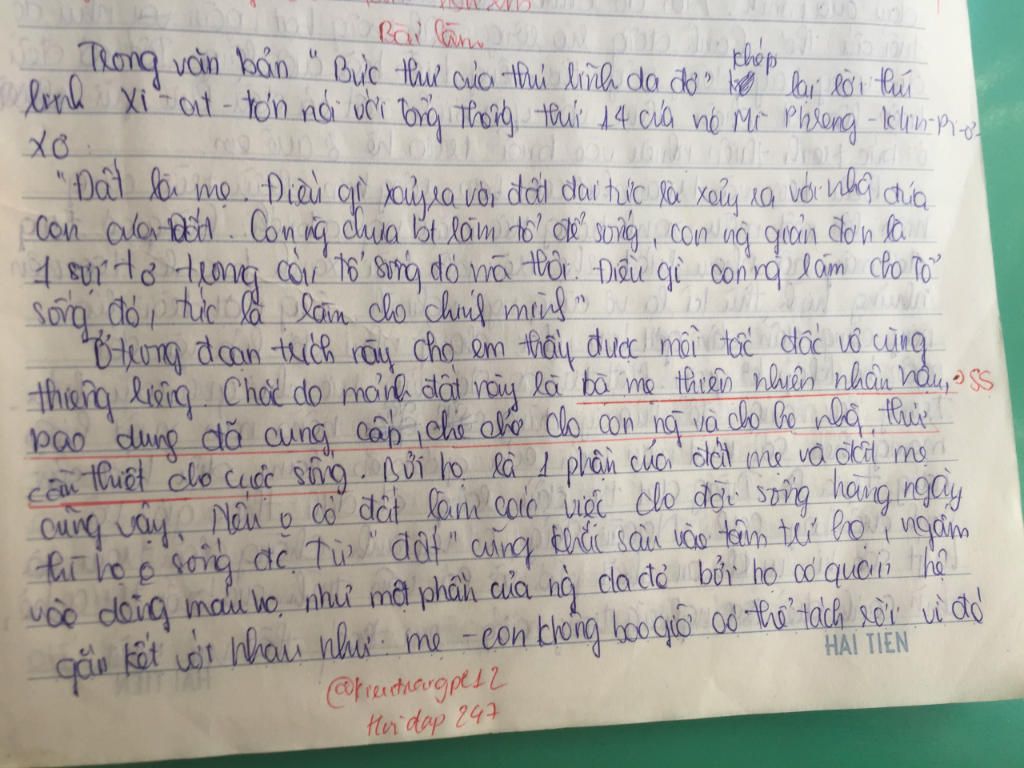 Bài làm
Trong văn bản " Bức thư của thủ lĩnh da đỏ" khép lại lời thủ
lĩnh Xi - at - tơn nói với Tổng Thống thứ 14 của nc Mĩ Phreng - klin - Pi-ơ-
xơ.
"Đất là mẹ. Điều gì xảy ra với đất đai tức là xảy ra với nhg đứa
con của Đất. Con ng chưa bt làm tổ để sống, con ng giản đơn là
1 sợi tơ trong cái tổ sống đó mà thôi. Điều gì con ng làm cho tổ
sống đó, tức là làm cho chính mình"
Ở trong đoạn trích này cho em thấy được mối tác đất vô cùng
thiêng liêng. Chắc do mảnh đất này là bà mẹ thiên nhiên nhân hậu, → SS
bao dung đã cung cấp, che chở cho con ng và cho họ nhg thứ
cần thiết cho cuộc sống. Bởi họ là 1 phần của đất mẹ và đất mẹ
cũng vậy. Nếu o có đất làm các việc cho đời sống hàng ngày
thì họ o sống đc. Từ "đất" cũng khắc sâu vào tâm trí họ, ngấm
vào dòng máu họ như một phần của ng da đỏ bởi họ có quan hệ
gắn kết với nhau như mẹ - con không bao giờ có thể tách rời vì đó
HAI TIEN
Hoidap 247